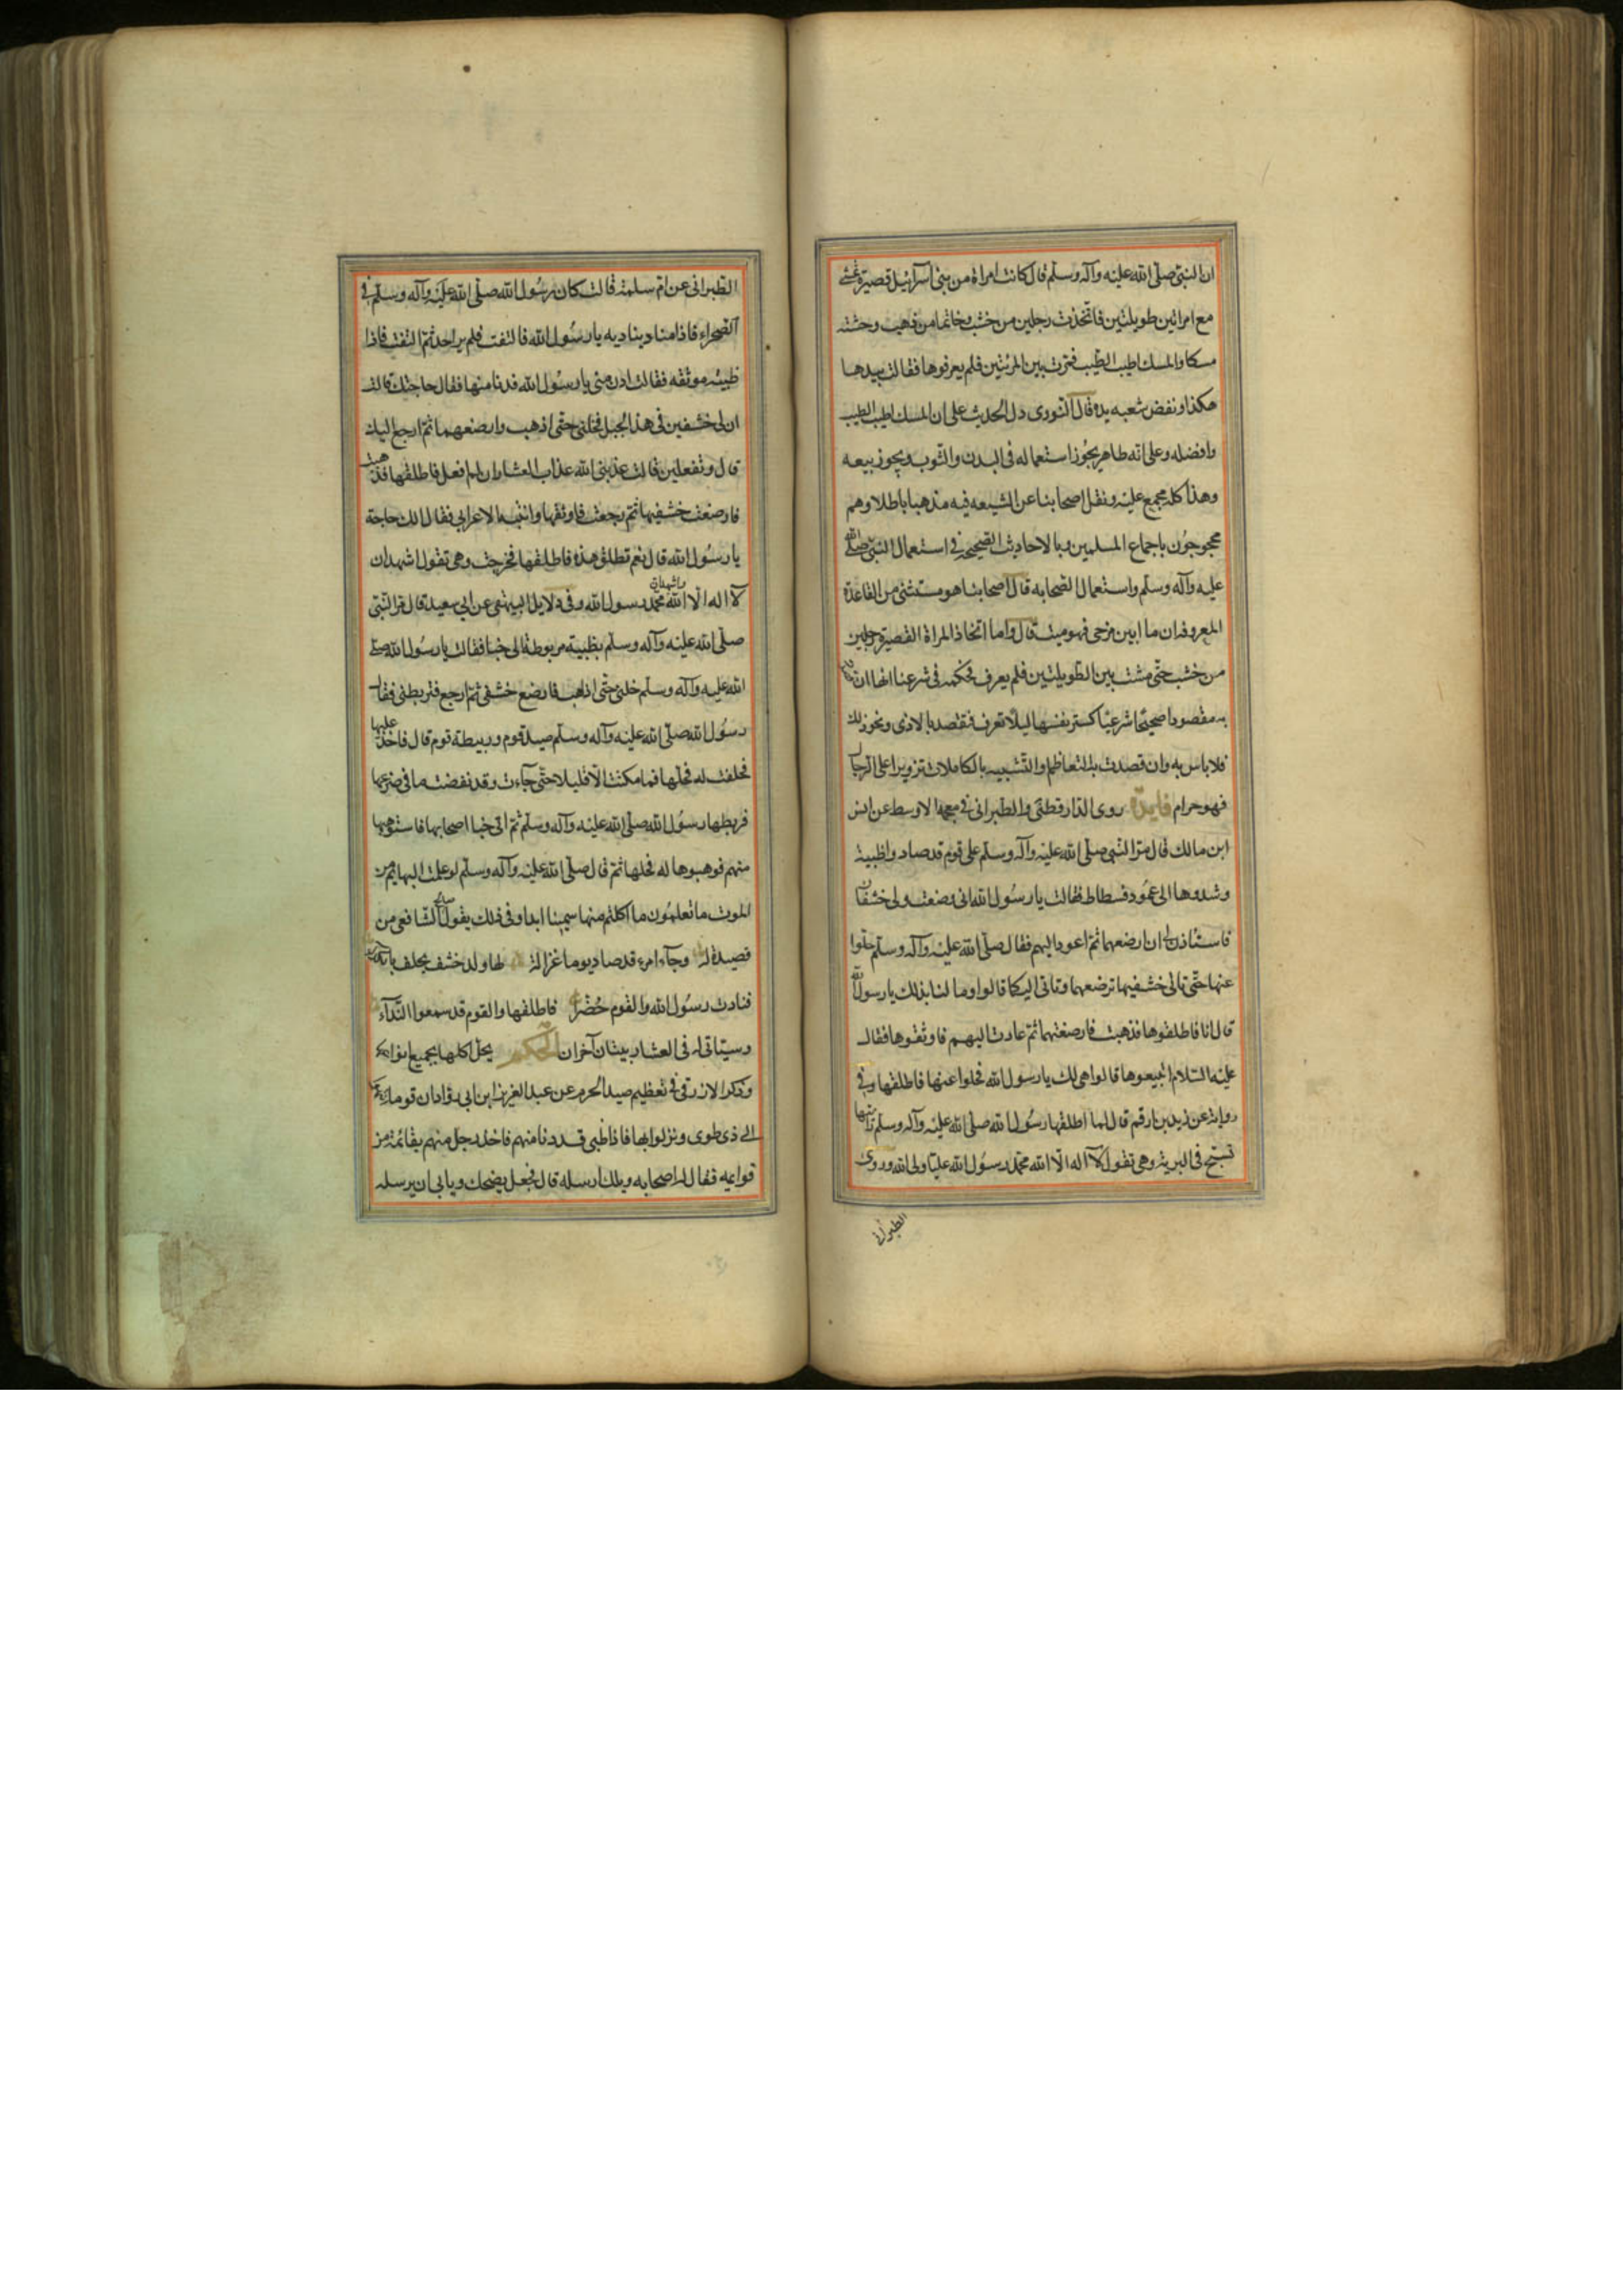 ان النبى صلّى الله عليه وآله وسلم قال كانت امراة من بنى اسرائيل قصيرة تمشى
مع امراتين طويلتين فاتخذت رجلين من خشب وخاتما من ذهب وحشته
مسكا والمسك اطيب الطيب فمرت بين المرئتين فلم يعرفوها فقالت بيدها
هكذا ونفض شعبه يده قال النووى دل الحديث على ان المسك اطيب الطيب
وافضله وعلى انه طاهر يجوز استعماله فى البدن والثوب ويجوز بيعه
وهذا كله مجمع عليه ونقل اصحابنا عن الشيعه فيه مذهبا باطلا وهم
محجوجون باجماع المسلمين وبالاحاديث الصحيحه فى استعمال النبى صلى الله
عليه وآله وسلم واستعمال الصحابه قال اصحابنا هو مستثنى من القاعدة
المعروفة ان ما ابين من حى فهو ميت قال واما اتخاذ المراة القصيرة رجلين
من خشب حتى مشت بين الطويلتين فلم يعرف فحكمه فى شرعنا انها ان
به مقصودا صحيحا شرعيا كستر نفسها ليلا تعرف فتقصد بالاذى ونحو ذلك
فلا باس به وان قصدت به التعاظم والتشبيه بالكاملات تزويرا على الرجال
فهو حرام فايدة روى الدارقطنى والطبرانى فى معجمه الاوسط عن انس
ابن مالك قال مر النبى صلى الله عليه وآله وسلم على قوم قد صادوا ظبية
وشدوها الى عمود فسطاط فقالت يا رسول الله انى وضعت ولى خشفان
فاستاذن لى ان ارضعهما ثم اعود اليهم فقال صلى الله عليه وآله وسلم خلوا
عنها حتى تاتى خشفيها ترضعهما وتاتى اليكم قالوا وما لنا بذلك يا رسول الله
قال انا فاطلقوها فذهبت فارضعتهما ثم عادت اليهم فاوثقوها فقال
عليه السلام اتبيعوها قالوا هى لك يا رسول الله فخلوا عنها فاطلقها وفى
رواية عن زيد بن ارقم قال لما اطلقها رسول الله صلى الله عليه وآله وسلم رايتها
تسبح فى البرية وهى تقول لا اله الا الله محمد رسول الله عليا ولى الله وروى
الطبرانى
الطبرانى عن ام سلمة قالت كان رسول الله صلى الله عليه وآله وسلم فى
الصحراء فاذا مناد يناديه يا رسول الله فالتفت فلم ير احدا ثم التفت فاذا
ظبيه موثقه فقالت ادن منى يا رسول الله فدنا منها فقال حاجتك قالت
ان لى خشفين فى هذا الجبل فخلنى حتى اذهب وارضعهما ثم ارجع اليك
قال وتفعلين قالت عذبنى الله عذاب العشار ان لم افعل فاطلقها فذهبت
فارضعت خشفيها ثم رجعت فاوثقها وانتبه الاعرابى فقال الك حاجة
يا رسول الله قال نعم تطلق هذه فاطلقها فخرجت وهى تقول اشهد ان
لا اله الا الله واشهد ان محمد رسول الله وفى دلايل البيهقى عن ابى سعيد قال مر النبى
صلى الله عليه وآله وسلم بظبية مربوطة الى خبا فقالت يا رسول الله صلى
الله عليه وآله وسلم خلنى حتى اذهب فارضع خشفى ثم ارجع فتربطنى فقال
رسول الله صلى الله عليه وآله وسلم صيد قوم وربيطة قوم قال فاخذ عليها
فحلفت له فحلها فما مكثت الا قليلا حتى جآءت وقد نفضت ما فى ضرعها
فربطها رسول الله صلى الله عليه وآله وسلم ثم اتى خبا اصحابها فاستوهبها
منهم فوهبوها له فحلها ثم قال صلى الله عليه وآله وسلم لو علمت البهايم من
الموت ما تعلمون ما اكلتم منها سمينا ابدا وفى ذلك يقول صالح الشافعى من
قصيدة له وجآء امرء قد صاد يوما غزالة لها ولد خشف تخلف
فنادت رسول الله والقوم حضر فاطلقها والقوم قد سمعوا الندآء
وسياتى له فى العشار بيتان آخران الحكم يحل اكلها بجميع انواعها
وذكر الازرقى فى تعظيم صيد الحرم عن عبد العزيز ابن ابى رواد ان قوما
الى ذى طوى ونزلوا بها فاذا ظبى قد دنا منهم فاخذ رجل منهم بقائمة من
قوايمه فقال له اصحابه ويلك ارسله قال فجعل يضحك ويابى ان يرسله